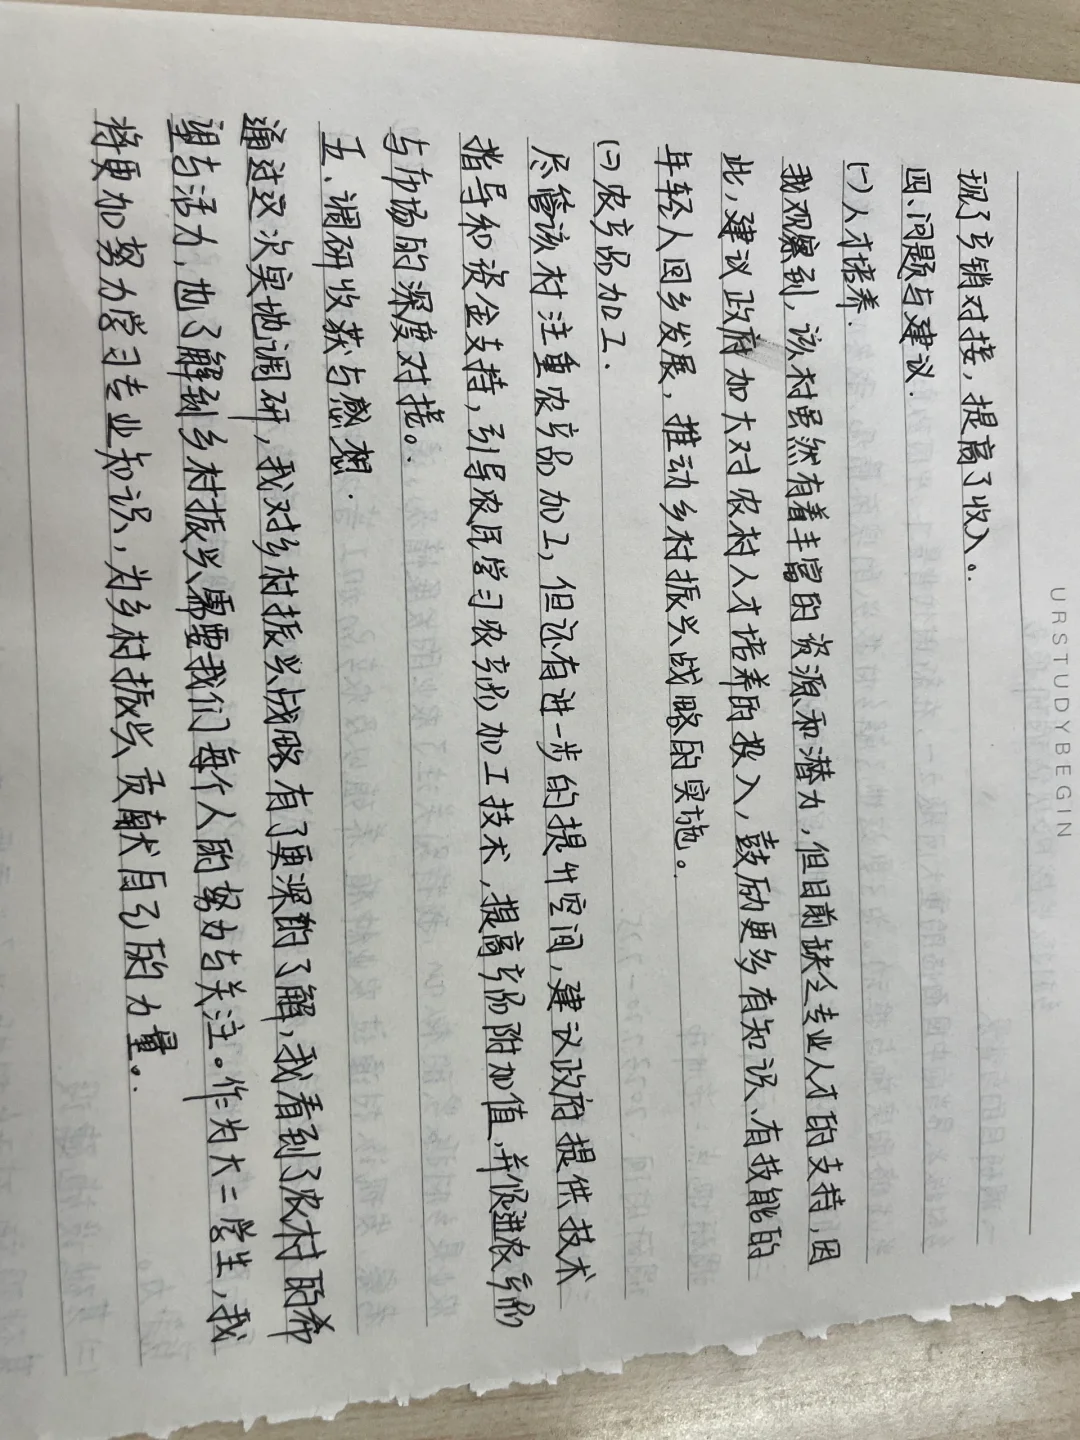 URSTUDYBEGIN
现了产销对接，提高了收入。
四、问题与建议.
(一)人才培养.
我观察到，该村虽然有着丰富的资源和潜力，但目前缺乏专业人才的支持，因
此，建议政府加大对农村人才培养的投入，鼓励更多有知识、有技能的
年轻人回乡发展，推动乡村振兴战略的实施。
(二)农产品加工.
尽管该村注重农产品加工，但还有进一步的提升空间，建议政府提供技术
指导和资金支持，引导农民学习农产品加工技术，提高产品附加值，并促进农产品
与市场的深度对接。
五、调研收获与感想.
通过这次实地调研，我对乡村振兴战略有了更深的了解，我看到了农村的希
望与活力，也了解到乡村振兴需要我们每个人的努力与关注。作为大二学生，我
将更加努力学习专业知识，为乡村振兴贡献自己的力量。